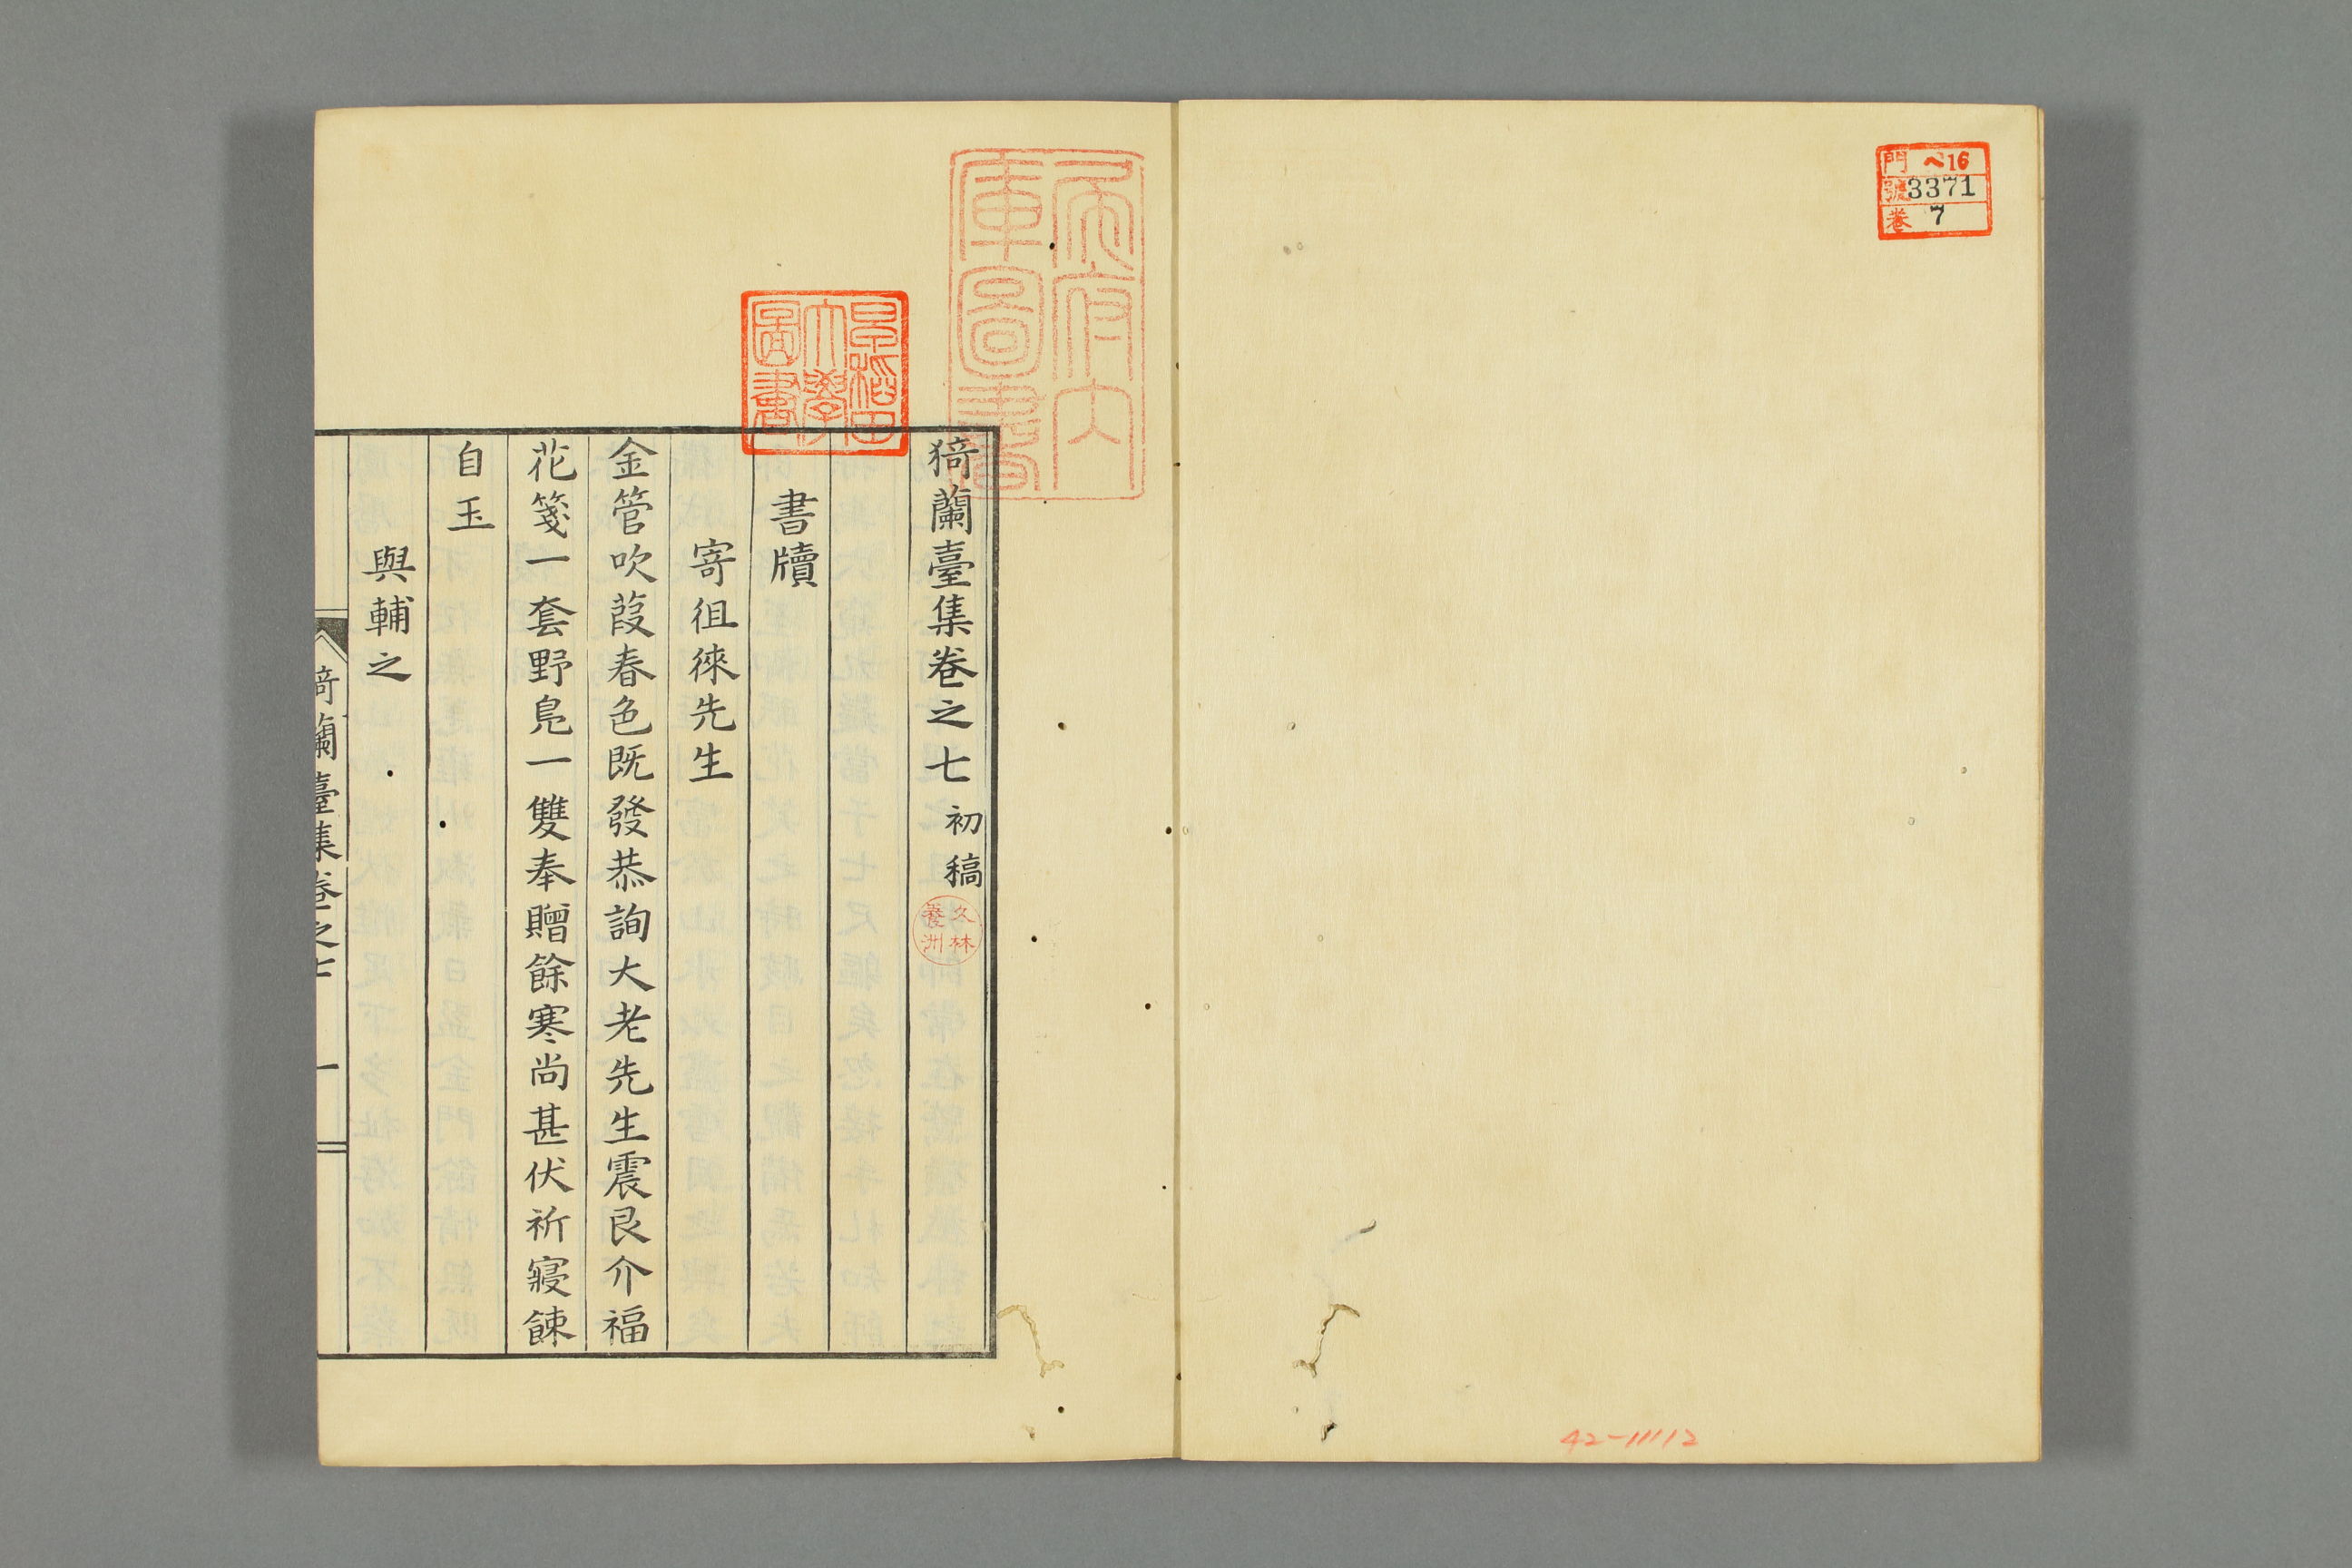 門 ヘ16
號 3371
卷 7
42-11112
猗蘭臺集卷之七 初稿
久林
養洲
早稲田
大學
圖書
府內
庫圖書
書牘
寄徂徠先生
金管吹葭春色既發恭詢大老先生震艮介福
花箋一套野鳧一雙奉贈餘寒尚甚伏祈寢餗
自玉
與輔之
猗蘭臺集卷之七 一